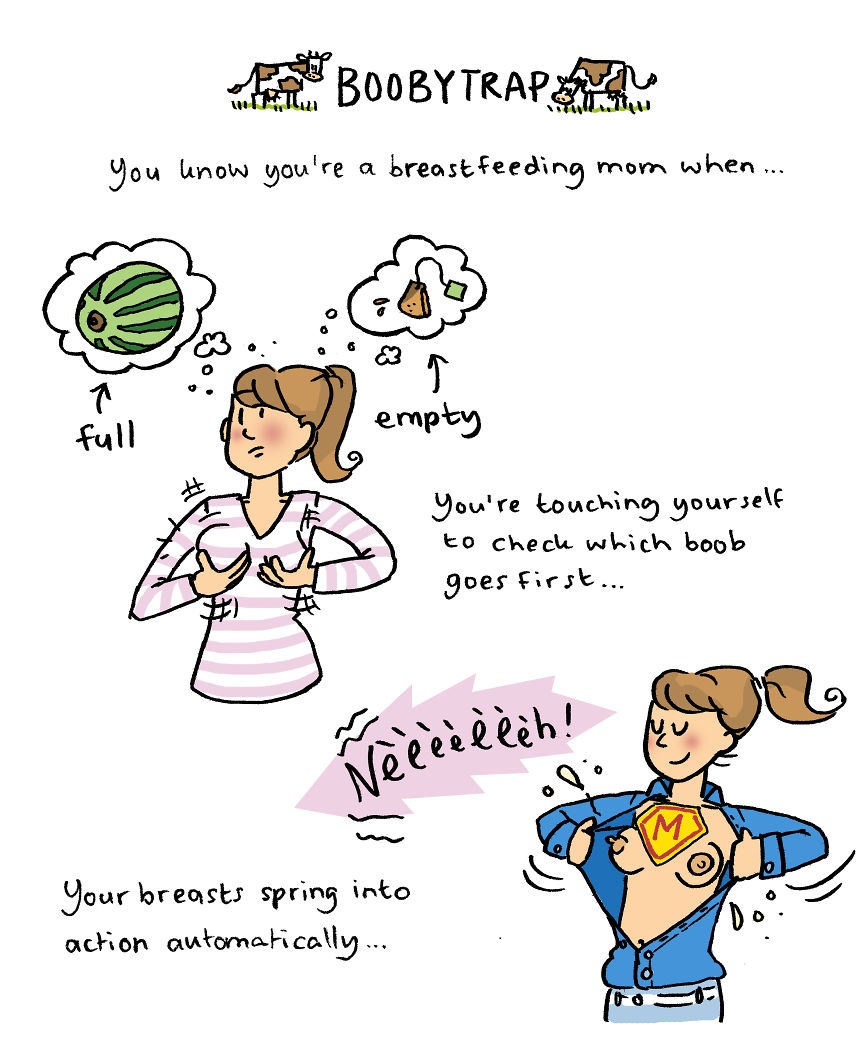 BOOBYTRAP
You know you're a breastfeeding mom when...
full
empty
You're touching yourself
to check which boob
goes first...
Nèèèèèèèh!
M
Your breasts spring into
action automatically...